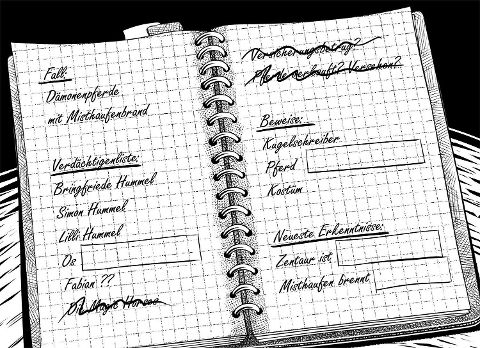 Fall:
Dämonenpferde
mit Misthaufenbrand
Verdächtigenliste:
Bringfriede Hummel
Simon Hummel
Lilli Hummel
Os
Fabian ??
Versicherungsbetrug?
Pferde verkauft? Versehen?
Beweise:
Kugelschreiber
Pferd
Kostüm
Neueste Erkenntnisse:
Zentaur ist
Misthaufen brennt